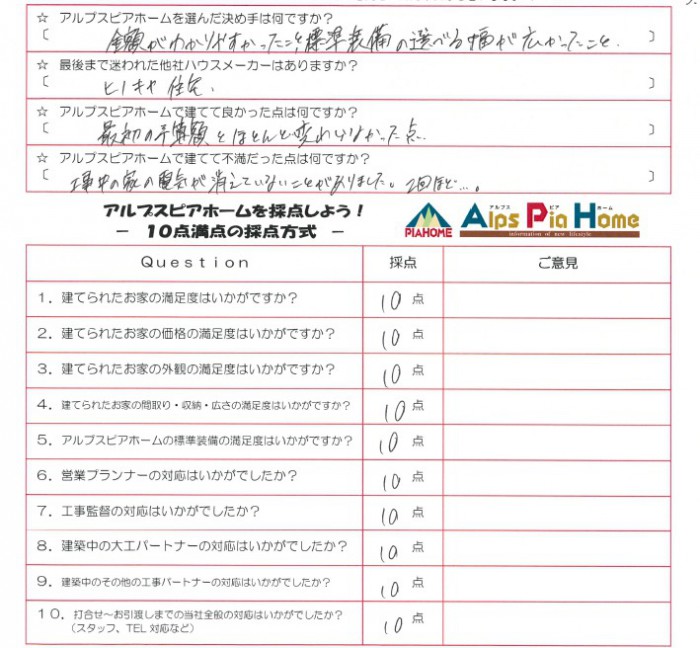 ☆ アルプスピアホームを選んだ決め手は何ですか?
〔 金額がわかりやすかったこと,標準装備の選べる幅が広かったこと. 〕
☆ 最後まで迷われた他社ハウスメーカーはありますか?
〔 ヒノキヤ住宅. 〕
☆ アルプスピアホームで建てて良かった点は何ですか?
〔 最初の予算額とほとんど変わらなかった点. 〕
☆ アルプスピアホームで建てて不満だった点は何ですか?
〔 工事中の家の電気が消えていないことがありました。2回ほど…。 〕
アルプスピアホームを採点しよう!
- 10点満点の採点方式 -
PIAHOME
アルプス ピア ホーム
Alps Pia Home
information of new lifestyle
Question 採点 ご意見
1. 建てられたお家の満足度はいかがですか? 10 点
2. 建てられたお家の価格の満足度はいかがですか? 10 点
3. 建てられたお家の外観の満足度はいかがですか? 10 点
4. 建てられたお家の間取り・収納・広さの満足度はいかがですか? 10 点
5. アルプスピアホームの標準装備の満足度はいかがですか? 10 点
6. 営業プランナーの対応はいかがでしたか? 10 点
7. 工事監督の対応はいかがでしたか? 10 点
8. 建築中の大工パートナーの対応はいかがでしたか? 10 点
9. 建築中のその他の工事パートナーの対応はいかがでしたか? 10 点
10. 打合せ~お引渡しまでの当社全般の対応はいかがでしたか? 10 点
(スタッフ、TEL対応など)